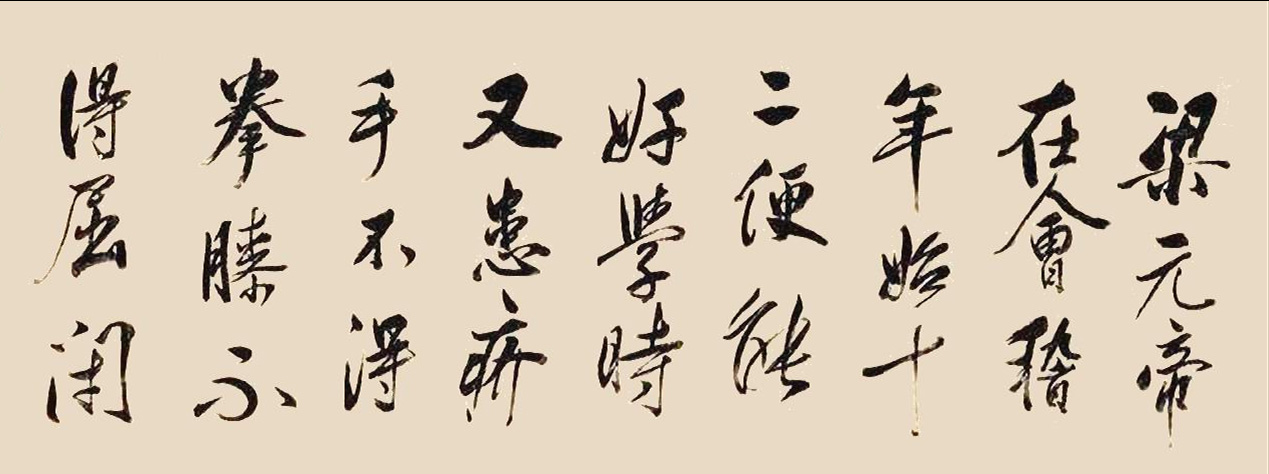 梁元帝
在會稽
年始十
二便能
好學時
又患疥
手不得
拳膝不
得屈閑